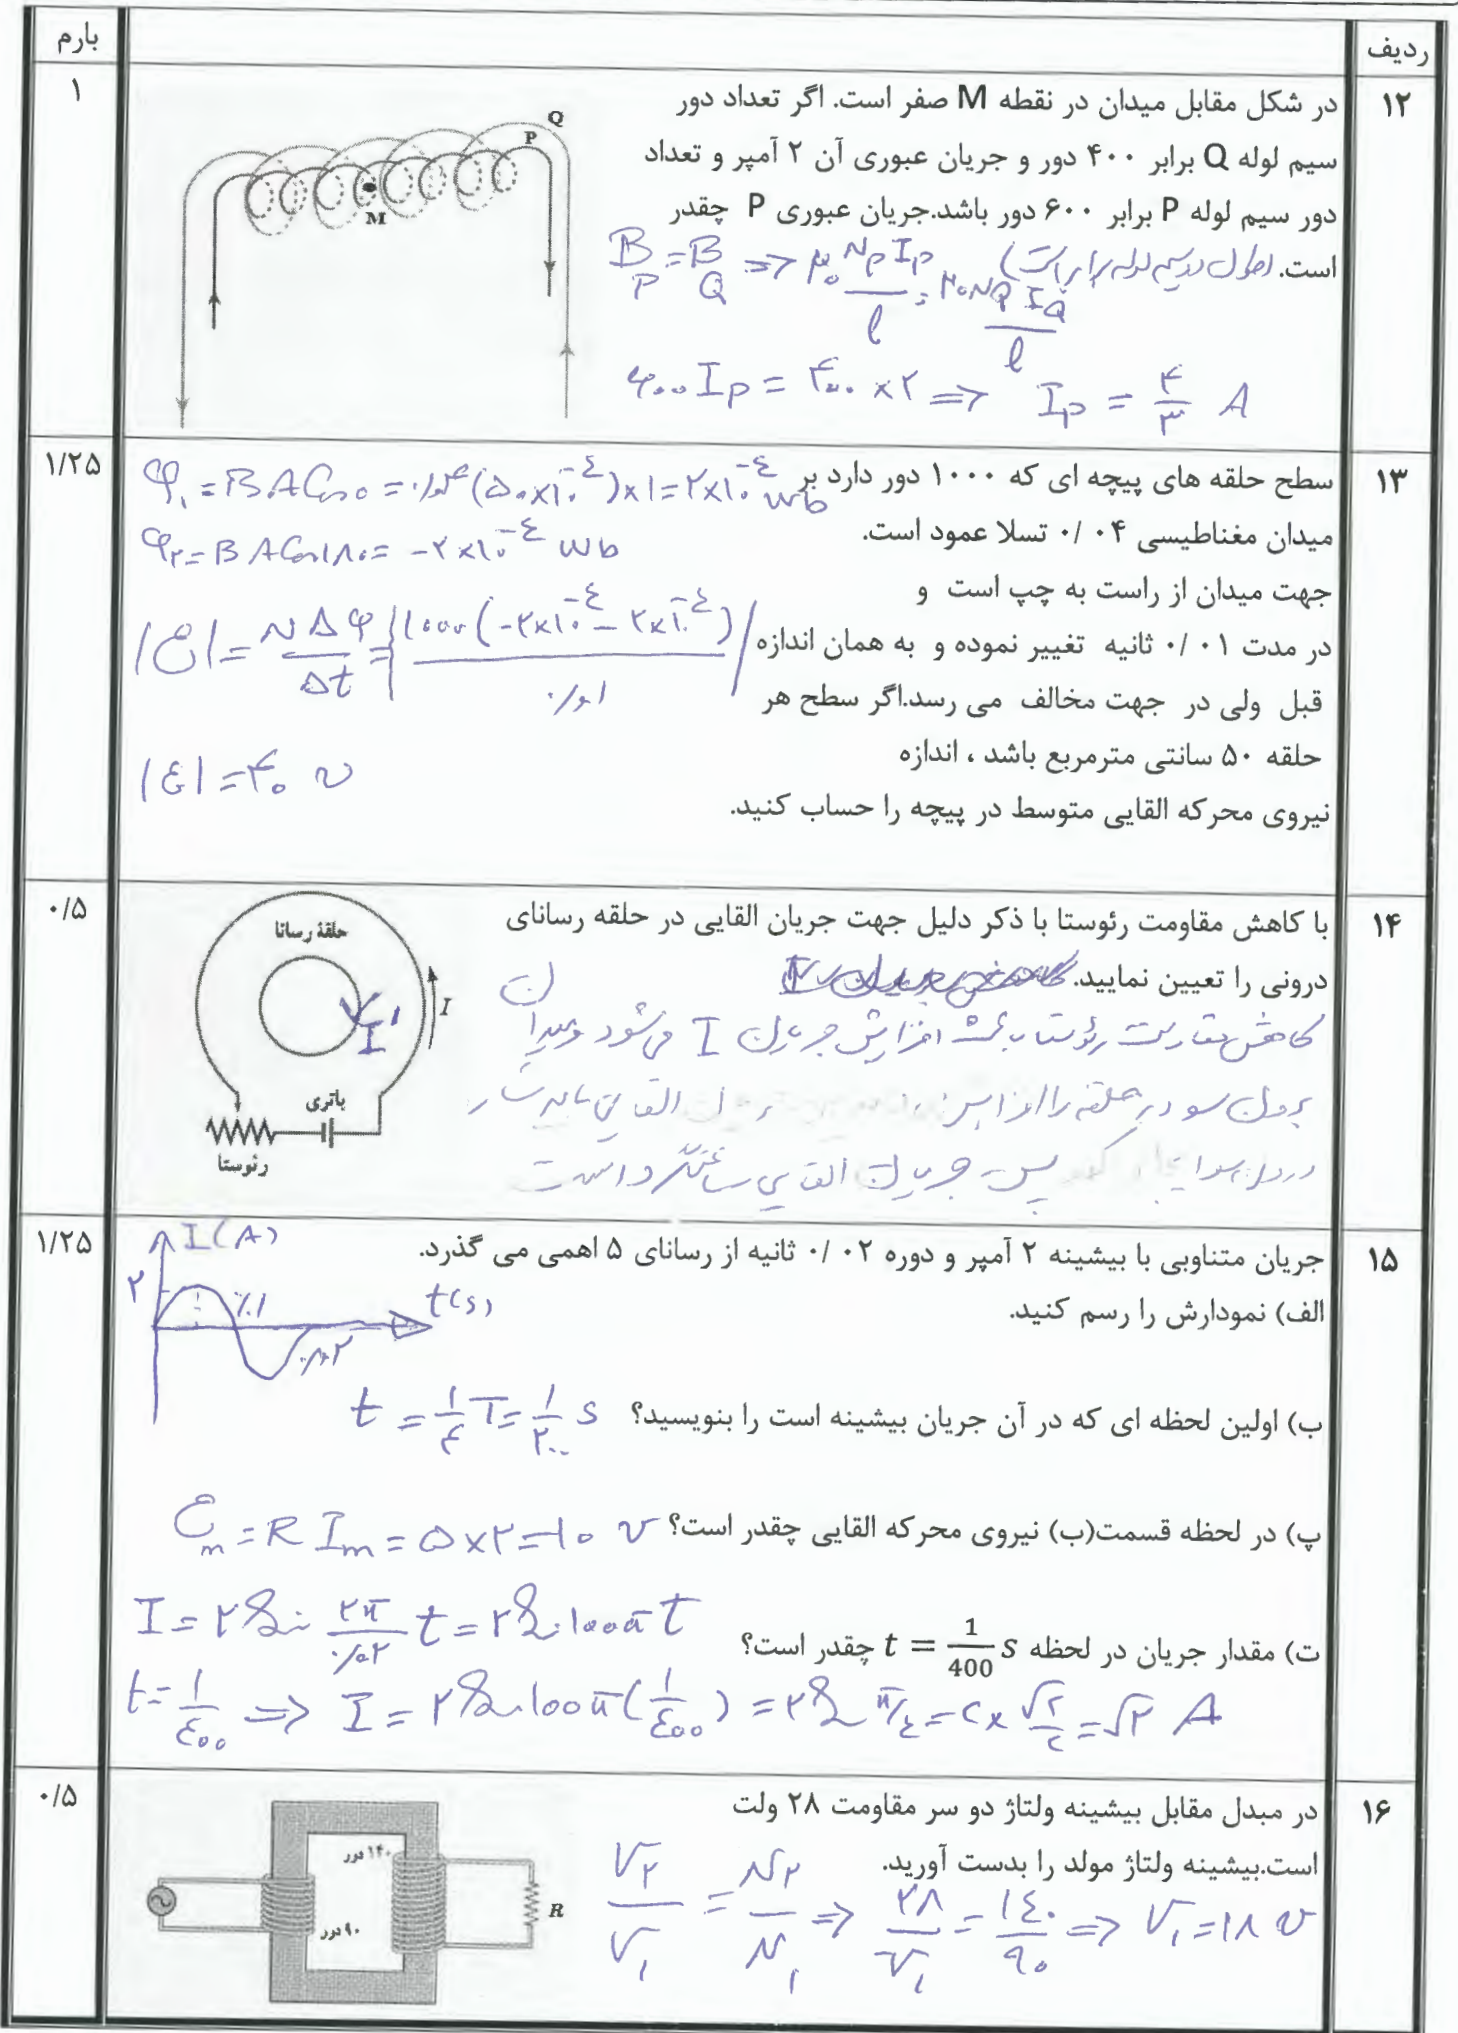 ردیف
بارم
۱۲
۱
در شکل مقابل میدان در نقطه M صفر است. اگر تعداد دور
سیم لوله Q برابر ۴۰۰ دور و جریان عبوری آن ۲ آمپر و تعداد
دور سیم لوله P برابر ۶۰۰ دور باشد.جریان عبوری P چقدر
است. (طول دو سیم لوله برابر است)
Q
P
M
B_P = B_Q => μ₀ N_P I_P / l = μ₀ N_Q I_Q / l
۶۰۰ I_P = ۴۰۰ × ۲ => I_P = ۴/۳ A
۱۳
۱/۲۵
سطح حلقه های پیچه ای که ۱۰۰۰ دور دارد بر
میدان مغناطیسی ۰/۰۴ تسلا عمود است.
جهت میدان از راست به چپ است و
در مدت ۰/۰۱ ثانیه تغییر نموده و به همان اندازه
قبل ولی در جهت مخالف می رسد.اگر سطح هر
حلقه ۵۰ سانتی مترمربع باشد ، اندازه
نیروی محرکه القایی متوسط در پیچه را حساب کنید.
φ₁ = B A Cos 0 = ۰/۰۴ (۵۰×۱۰⁻⁴) × ۱ = ۲×۱۰⁻⁴ wb
φ₂ = B A Cos ۱۸۰ = -۲×۱۰⁻⁴ wb
|ε| = N Δφ / Δt = | ۱۰۰۰ (-۲×۱۰⁻⁴ - ۲×۱۰⁻⁴) / ۰/۰۱ |
|ε| = ۴۰ v
۱۴
۰/۵
با کاهش مقاومت رئوستا با ذکر دلیل جهت جریان القایی در حلقه رسانای
درونی را تعیین نمایید.
حلقهٔ رسانا
I
I'
باتری
رئوستا
کاهش مقاومت رئوستا باعث افزایش جریان I می‌شود و میدان
برون سو در حلقه را
القایی باید
پس جریان القایی ساعتگرد است
۱۵
۱/۲۵
جریان متناوبی با بیشینه ۲ آمپر و دوره ۰/۰۲ ثانیه از رسانای ۵ اهمی می گذرد.
الف) نمودارش را رسم کنید.
I(A)
۲
t(s)
۰/۰۲
ب) اولین لحظه ای که در آن جریان بیشینه است را بنویسید؟ t = ۱/۴ T = ۱/۲۰۰ s
پ) در لحظه قسمت(ب) نیروی محرکه القایی چقدر است؟ ε_m = R I_m = ۵×۲ = ۱۰ v
ت) مقدار جریان در لحظه t = 1/400 s چقدر است؟
I = ۲ Sin ۲π/۰/۰۲ t = ۲ Sin ۱۰۰π t
t = ۱/۴۰۰ => I = ۲ Sin ۱۰۰π (۱/۴۰۰) = ۲ Sin π/۴ = ۲ × √۲/۲ = √۲ A
۱۶
۰/۵
در مبدل مقابل بیشینه ولتاژ دو سر مقاومت ۲۸ ولت
است.بیشینه ولتاژ مولد را بدست آورید.
۱۴۰ دور
۹۰ دور
R
V₂/V₁ = N₂/N₁ => ۲۸/V₁ = ۱۴۰/۹۰ => V₁ = ۱۸ v